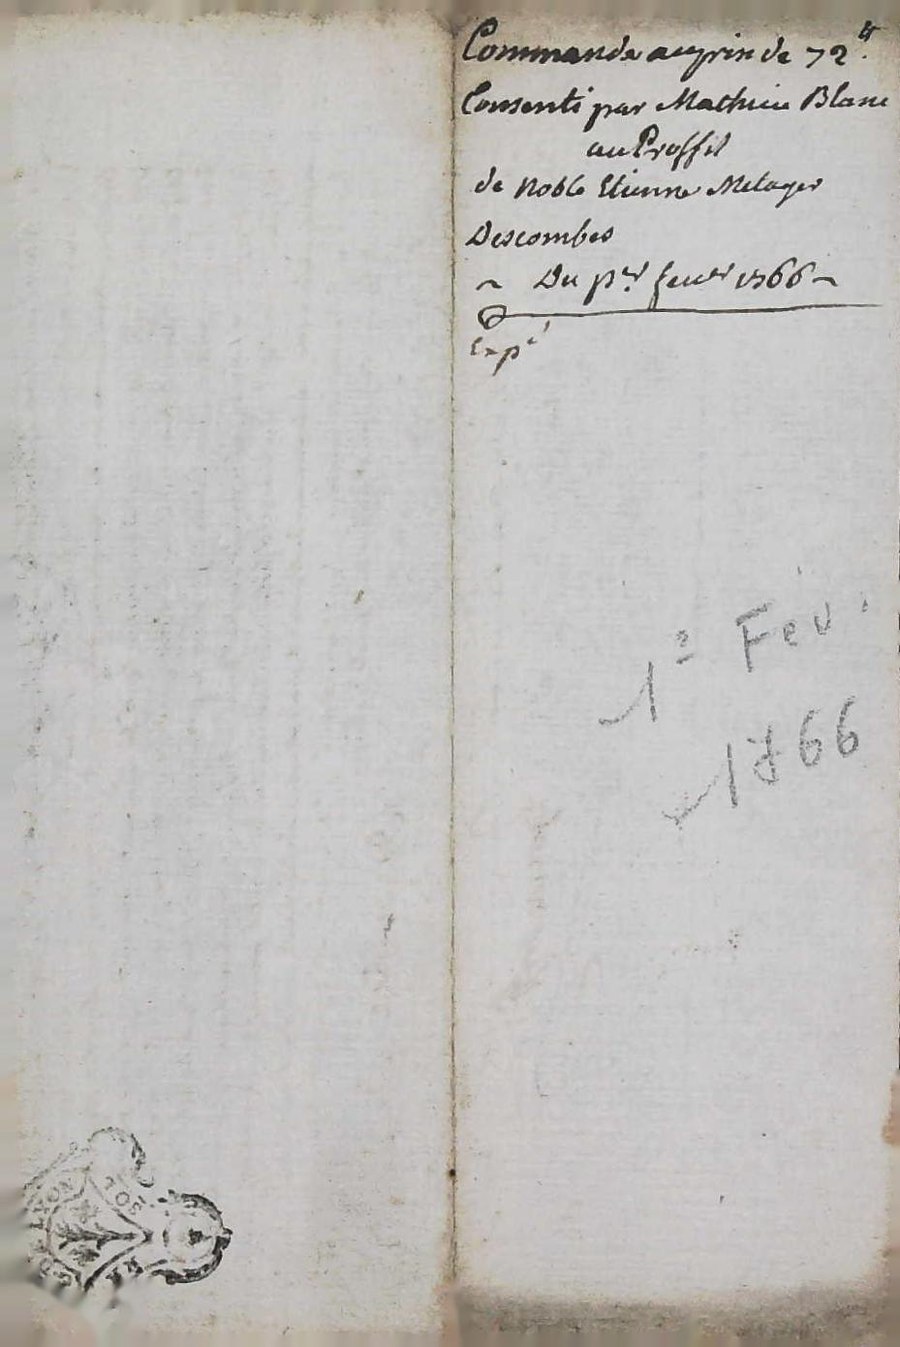 Commande au prix de 72 ₶.
Consenti par Mathieu Blanc
au Proffit
de Noble Etienne Metayer
Descombes
~ Du p.er feuer 1766 ~
Exp.é
1º Fev.
1766
LYON
SOL